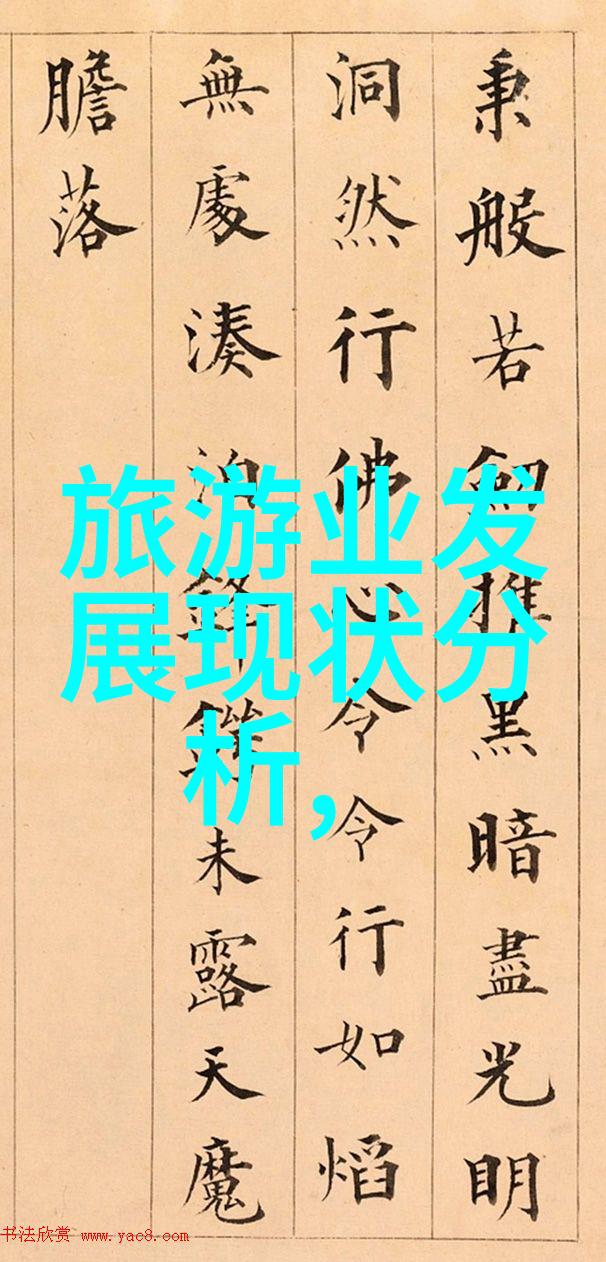 秉般若劍推黑暗盡光明
洞然行佛心令令行如熖
無處湊泊鋒鋩未露天魔
膽落
旅游业发
展现状分
析,
书法欣赏 www.yac8.com